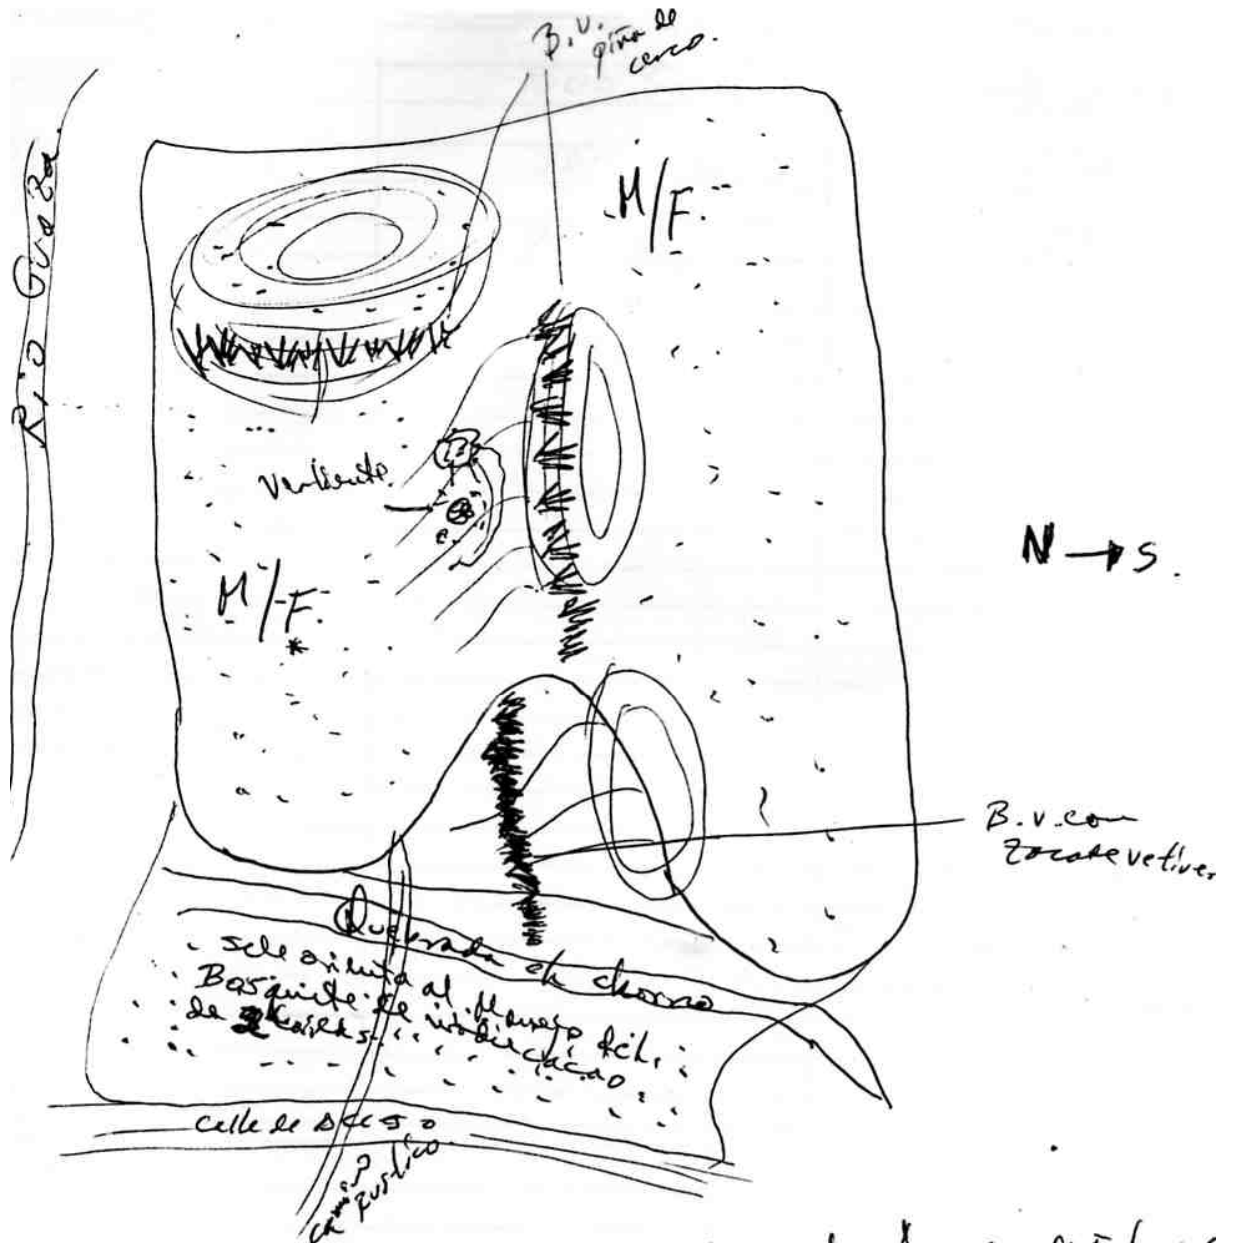 B.V.
piña de
cerco.
Rio Guaza
M/F.
Vertiente
N → S.
M/F.
*
B.v. con
zacate vetiver
Quebrada el chorro
se le orienta al manejo del
Bosquete de
de
cacao
calle de acceso
camino
Rustico